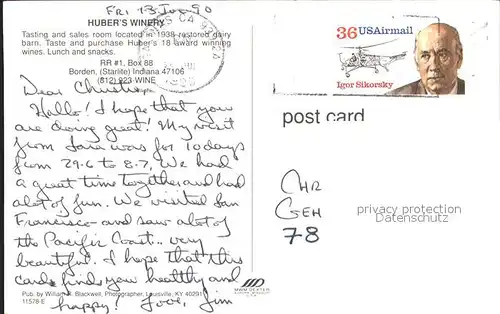 Fri 13 Jul 90
HUBER'S WINERY
Tasting and sales room located in 1938 restored dairy
barn. Taste and purchase Huber's 18 award winning
wines. Lunch and snacks.
RR #1, Box 88
Borden, (Starlite) Indiana 47106
(812) 923-WINE
CA
36 USAirmail
Igor Sikorsky
post card
Dear
Hello! I hope that you
are doing great! My visit
from Lara was for 10 days
from 29-6 to 8-7. We had
a great time together and had
alot of fun. We visited San
Francisco - and saw alot of
the Pacific Coast.. very
beautiful. I hope that this
card finds you healthy and
happy! Love, Jim
CHR
GEH
78
privacy protection
Datenschutz
Pub. by William R. Blackwell, Photographer, Louisville, KY 40291
11578-E
MWM DEXTER